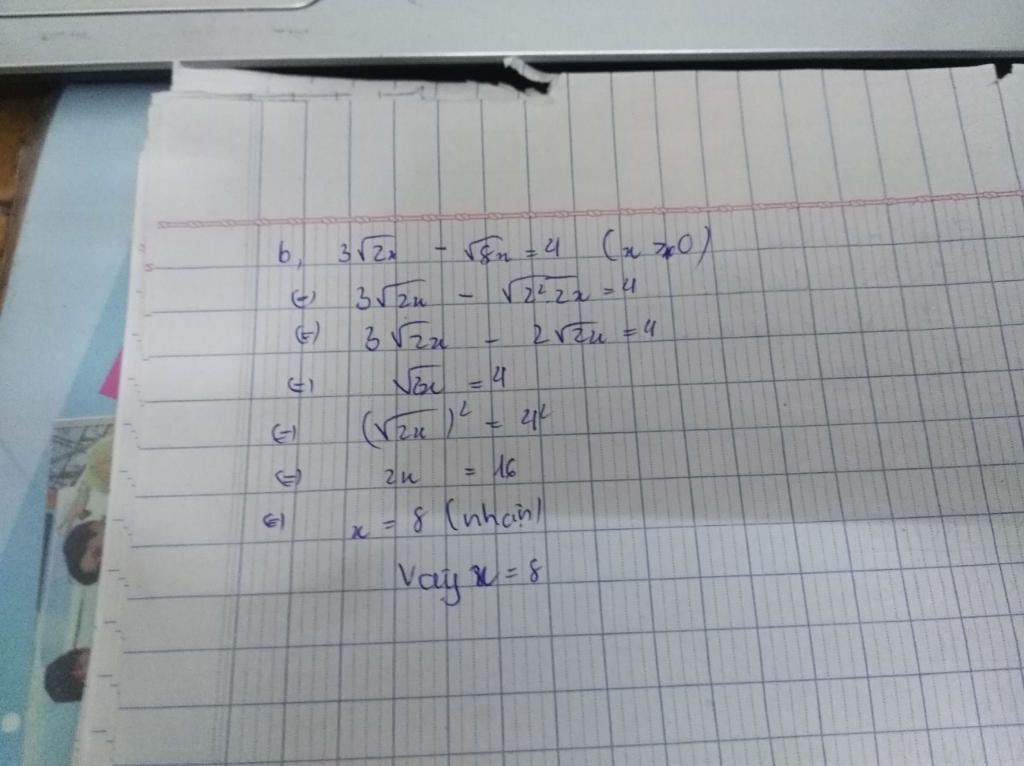 b, 3√2x - √8x = 4 (x ≥ 0)
(=) 3√2x - √2² 2x = 4
(=) 3√2x - 2√2x = 4
(=) √2x = 4
(=) (√2x)² = 4²
(=) 2x = 16
(=) x = 8 (nhận)
Vậy x = 8